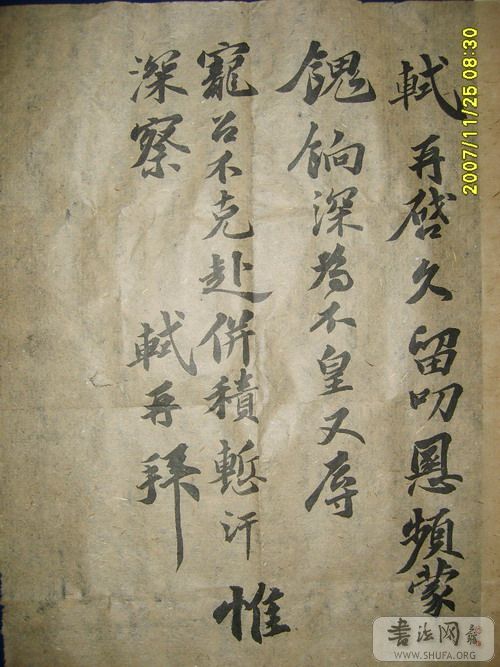 軾再啓久留叨恩頻蒙
餽餉深為不皇又辱
寵召不克赴併積慙汗惟
深察
軾再拜
2007/11/25 08:30
書法网
WWW.SHUFA.ORG